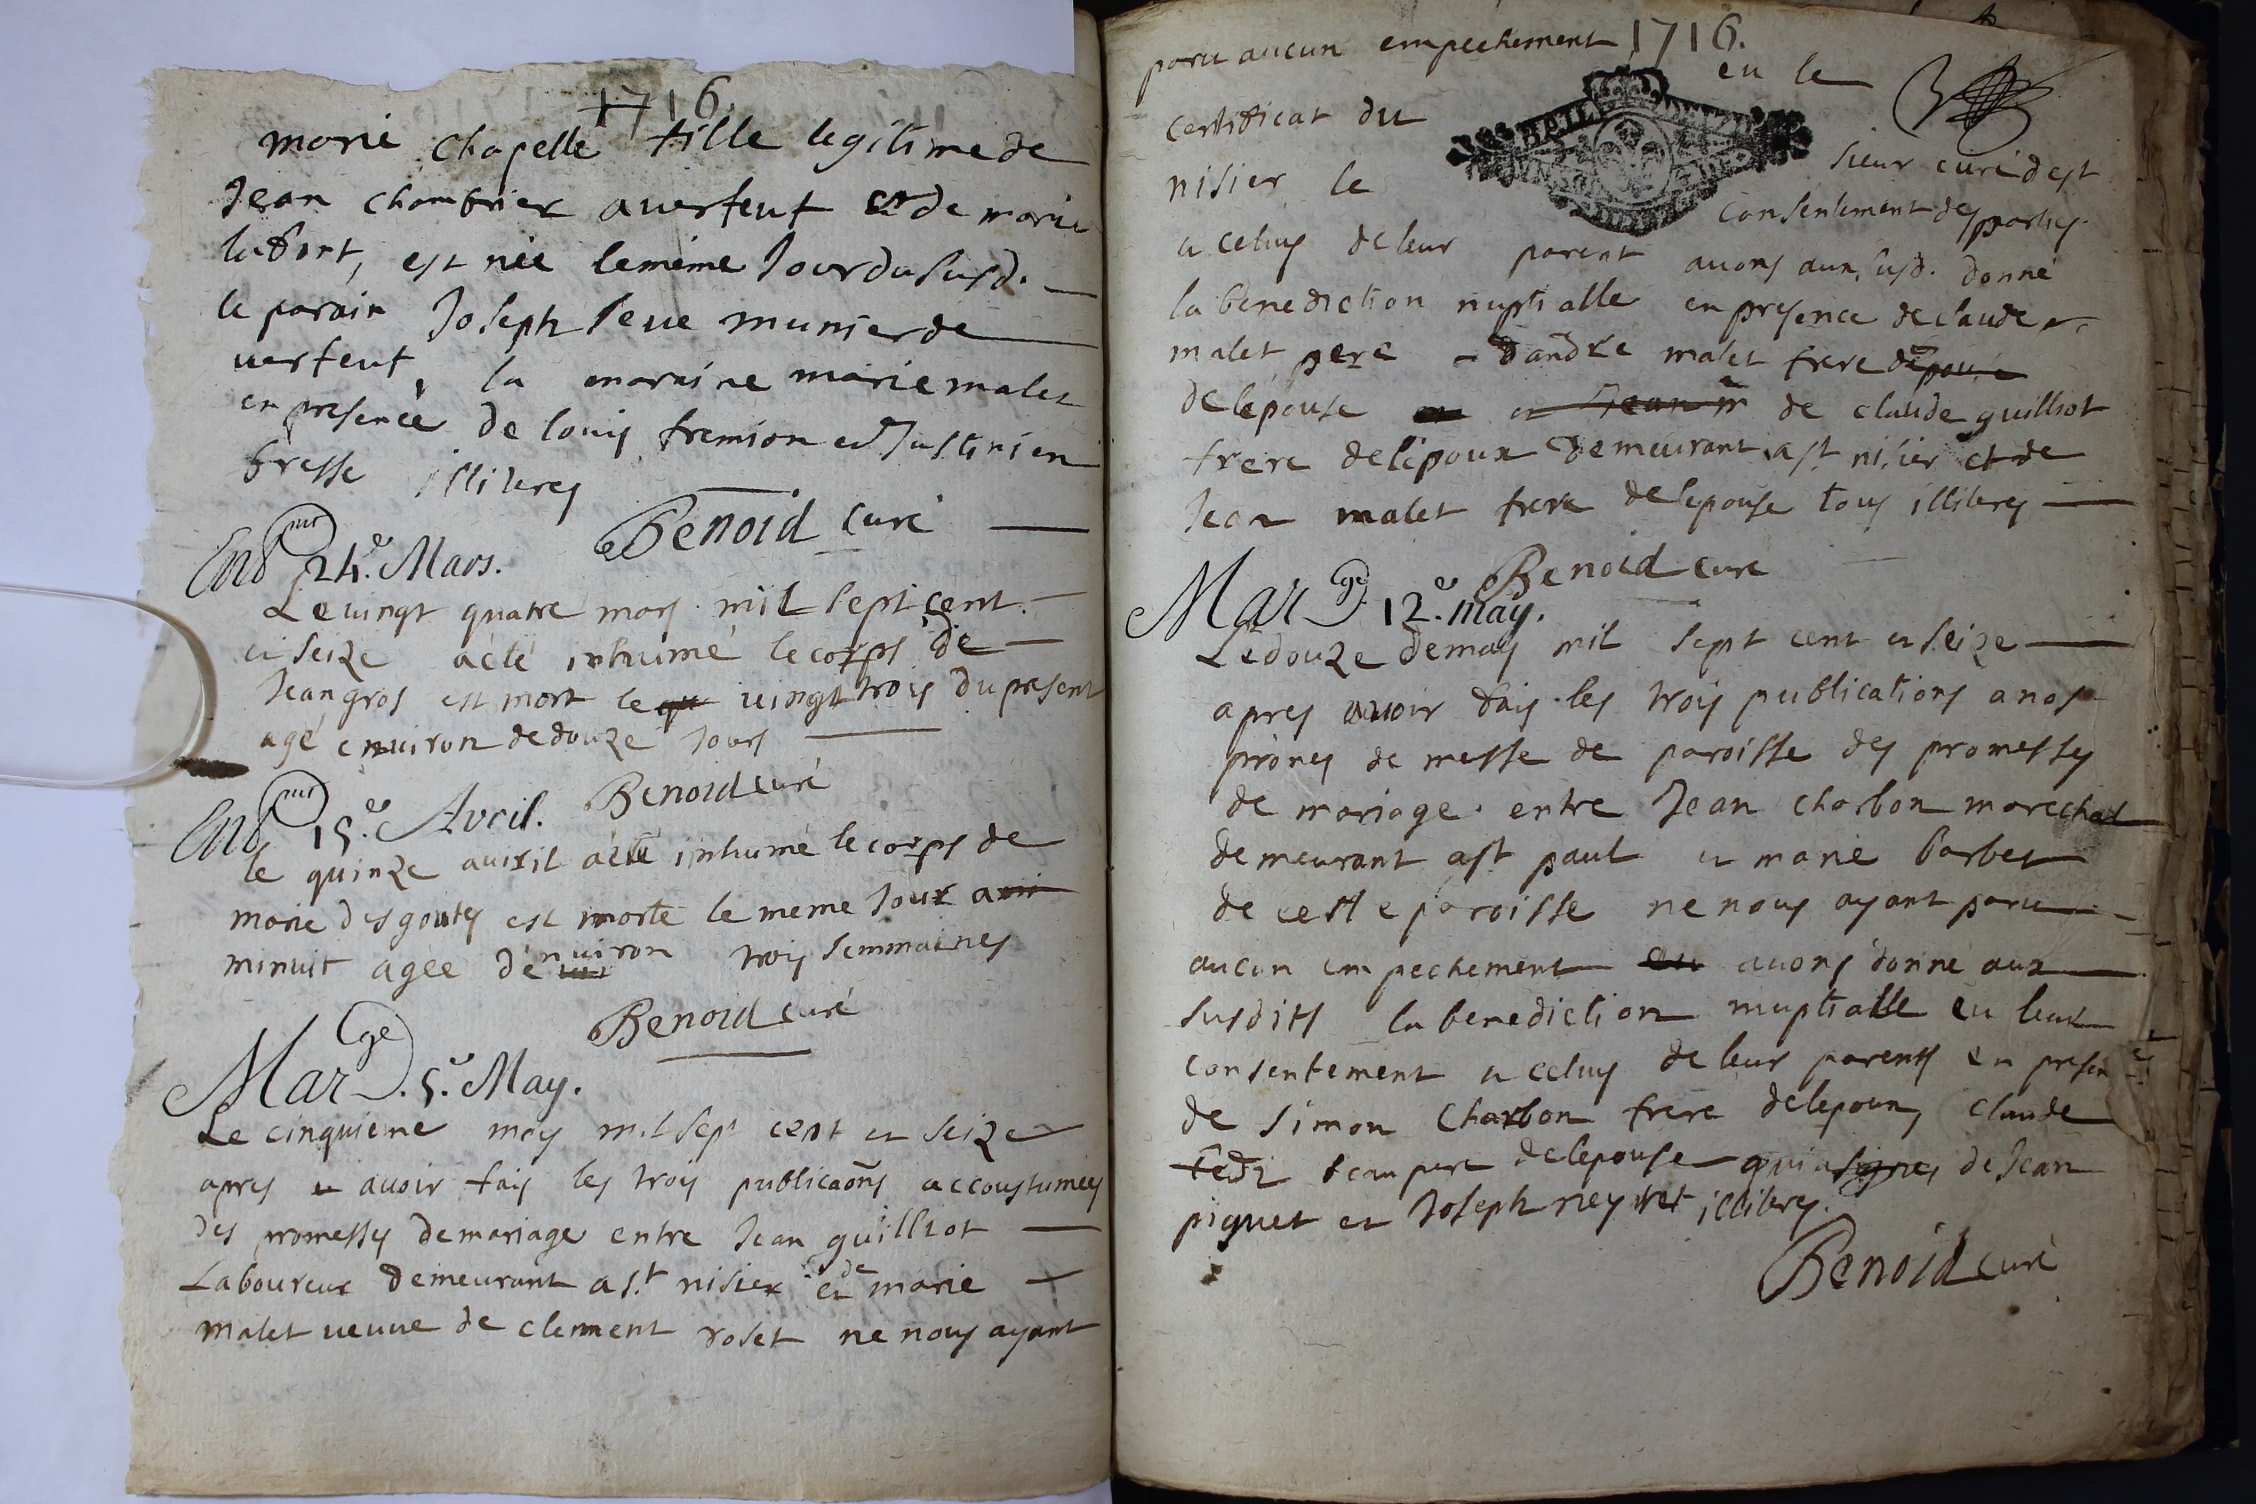 1716.
marie chapelle fille legitime de
Jean chambrier a verfeut et de marie
lafont, est née le même Jour du susd.
le parain Joseph seve munier de
verfeut, la maraine marie malet
en presence de louis fremion et Justinien
bresse illiteres
Benoid curé
Entmnt 24.e Mars.
Le vingt quatre mars mil sept cent
et seize a été inhumé le corps de
Jean gros est mort le vingt trois du present
agé environ de douze Jours
Benoid curé
Entmnt 15.e Avril.
le quinze avril a été inhumé le corps de
marie desgoutes est morte le meme Jour a
minuit agée d'environ trois semmaines
Benoid curé
Marge. 5.e May.
Le cinquieme may mil sept cent et seize
apres avoir fais les trois publicaõns accoustumées
des promesses de mariage entre Jean guilliot
Laboureur demeurant a s.t nisier et de marie
malet veuve de clement roset ne nous ayant
1716.
paru aucun empechement eu le
certificat du sieur curé de st
nisier le consentement des parties
et celuy de leur parent avons aux susd. donné
la benediction nuptialle en presence de claude
malet pere d'andre malet frere depouse
de lepouse et Jean de claude guilliot
frere de lepoux demeurant a st nisier et de
Jean malet frere de lepouse tous illiteres
Benoid curé
Marge. 12.e may.
Le douze de may mil sept cent et seize
apres avoir fais les trois publications a nos
prônes de messe de paroisse des promesses
de mariage entre Jean charbon marechal
demeurant a st paul et marie barbet
de cette paroisse ne nous ayant paru
aucun empechement avons donné aux
susdits la benediction nuptialle eu leur
consentement et celuy de leur parents en presen
de simon Charbon frere de lepoux, claude
beaupere de lepouse qui a signé, de Jean
piquet et Joseph neyret illiteres.
Benoid curé